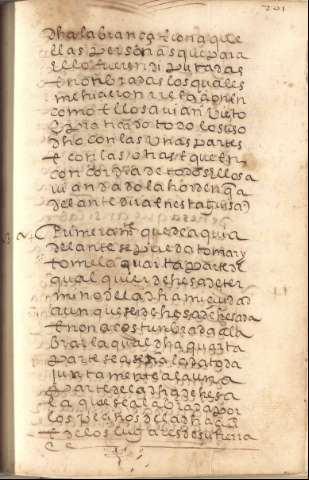 dha labrança e con aque
llas personas que para
ello fueren diputadas
e nonbradas los quales
me hizieron rrelaçion en
como ellos avian visto
e platicado todo lo suso
dho con las unas partes
e con las otras e que en
concordia de todos ellos a
vian dado la horden q̃ a
delante dira en esta guisa
Primeramẽ que de aqui a
delante se pueda tomar y
tome la quarta parte de
qual quier dehesa de ter
mino de la dha mi çiudad
aunque sea dehesa dehesada
e non acostunbrada a la
brar la qual dha quarta
parte sea señalada toda
juntamente a la una
parte de la dha dehesa
la qual sea labrada por
los vezinos de la dha çiu
e de los lugares de su tierra